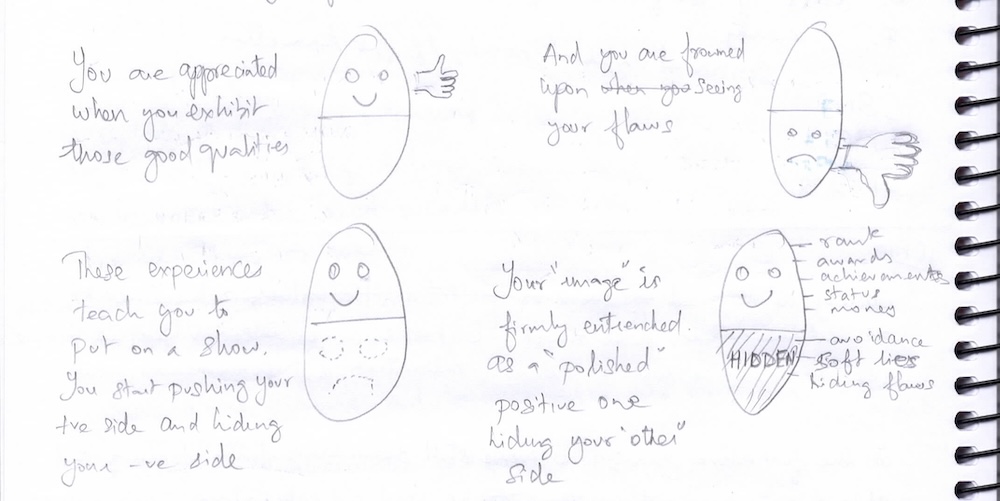 You are appreciated
when you exhibit
those good qualities
And you are frowned
upon when you seeing
your flaws
These experiences
teach you to
put on a show.
You start pushing your
+ve side and hiding
your -ve side
Your "image" is
firmly entrenched.
as a "polished"
positive one
hiding your "other"
side
rank
awards
achievements
status
money
HIDDEN
avoidance
soft lies
hiding flaws